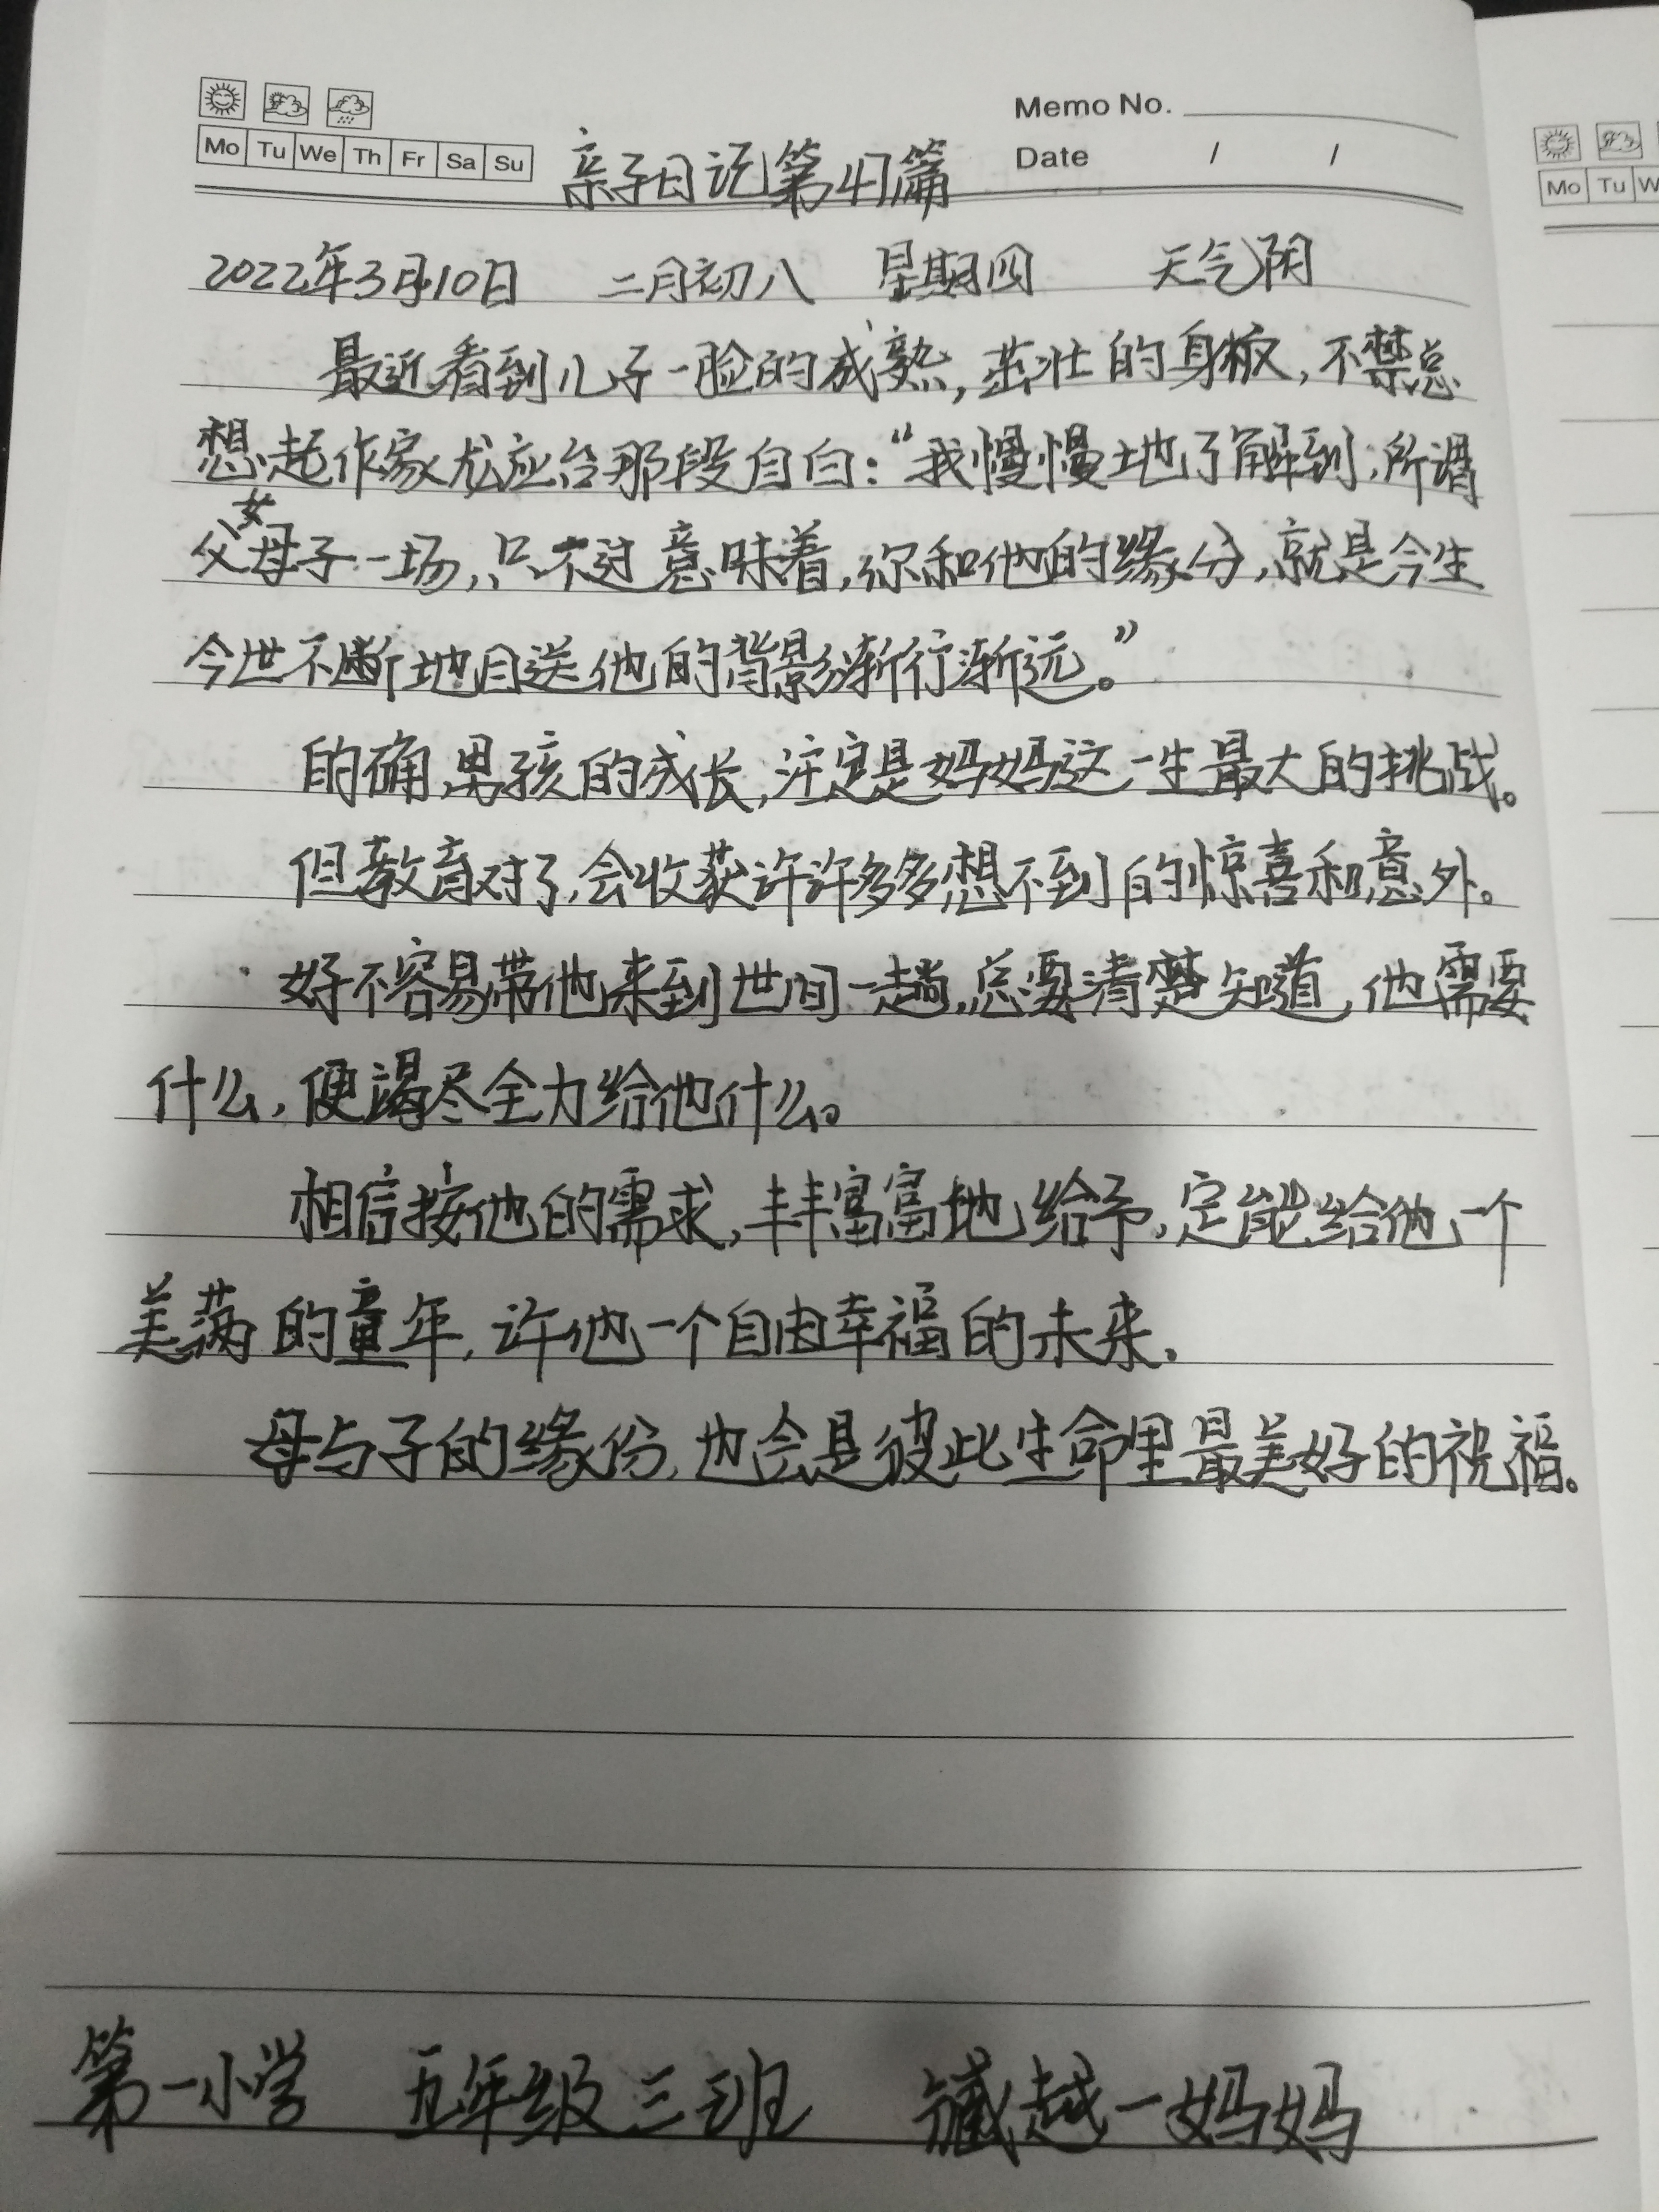 Memo No.
Mo Tu We Th Fr Sa Su
Date / /
亲子日记第41篇
2022年3月10日 二月初八 星期四 天气阴
最近看到儿子一脸的成熟,茁壮的身板,不禁总
想起作家尤应台那段自白:“我慢慢地了解到,所谓
父女母子一场,只不过意味着,你和他的缘分,就是今生
今世不断地目送他的背影渐行渐远。”
的确,男孩的成长,注定是妈妈这一生最大的挑战。
但教育对了,会收获许许多多想不到的惊喜和意外。
好不容易带他来到世间一趟,总要清楚知道,他需要
什么,便竭尽全力给他什么。
相信按他的需求,丰丰富富地给予,定能给他一个
美满的童年,许他一个自由幸福的未来。
母与子的缘份,也会是彼此生命里最美好的祝福。
第一小学 五年级三班 臧越一妈妈
Mo Tu W